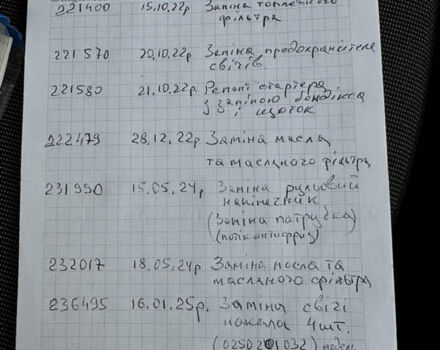 221400 15.10.22р Заміна топливного
фільтра
221570 20.10.22р Заміна предохранителя
свічів
221580 21.10.22р Ремонт стартера
з заміною бендікса
і щоток
222479 28.12.22р Заміна масла
та масляного фільтра
231990 15.05.24р Заміна рульовий
накінечник
(Заміна патрубка)
(потік антифриз)
232017 18.05.24р Заміна масла та
масляного фільтра
236495 16.01.25р. Заміна свічі
накала 4шт.
(0250201032)